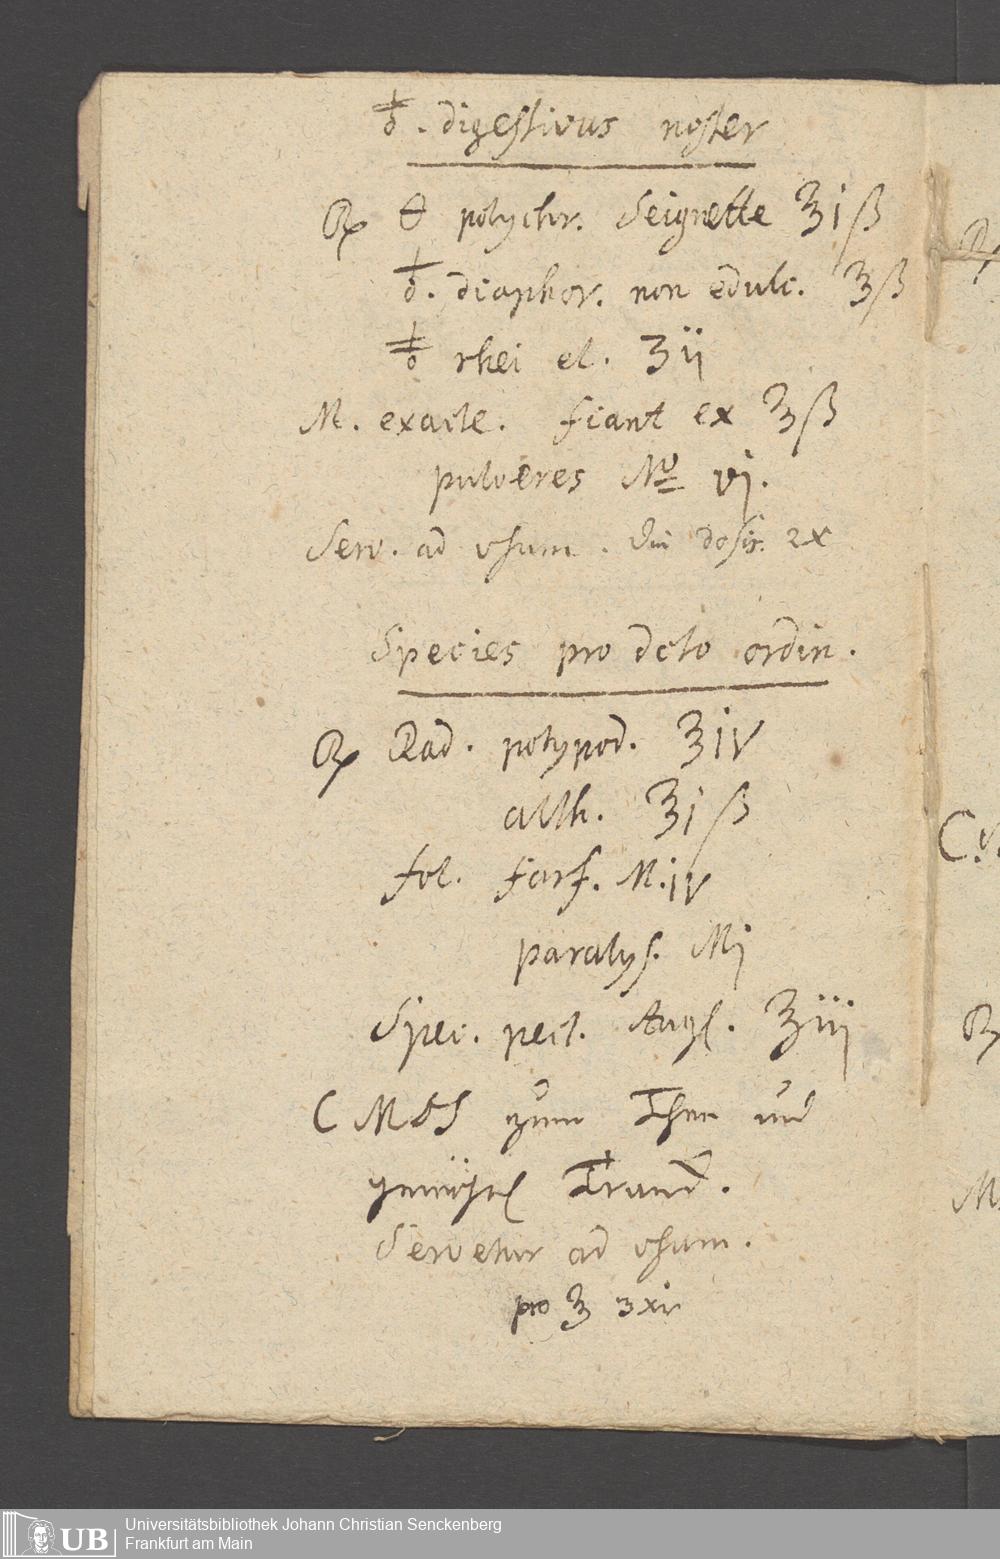 ♁. digestivus noster
℞ θ polychr. Seignette ℥iß
♁. diaphor. non edulc. ℥ß
♁ rhei el. ʒij
M. exacte. fiant ex ℥ß
pulveres No vj.
Serv. ad usum. dosis.
Species pro dcto ordin.
℞ Rad. polypod. ℥iv
alth. ℥iß
fol. farf. M.iv
paralys. Mj
Spec. pect. Aug. ℥iij
C M zum Thee und
Tranck.
Servetur ad usum.
pro ℥
Universitätsbibliothek Johann Christian Senckenberg
UB Frankfurt am Main